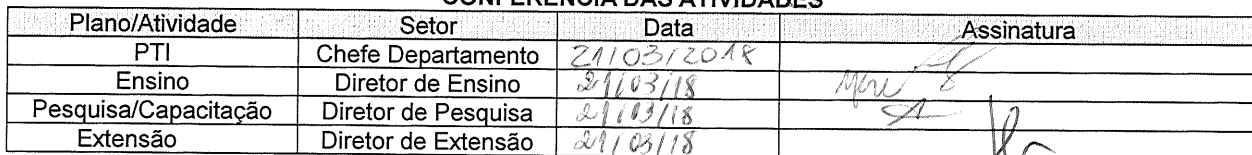 CONFERÊNCIA DAS ATIVIDADES
Plano/Atividade Setor Data Assinatura
PTI Chefe Departamento 21/03/2018
Ensino Diretor de Ensino 21/03/18
Pesquisa/Capacitação Diretor de Pesquisa 21/03/18
Extensão Diretor de Extensão 21/03/18